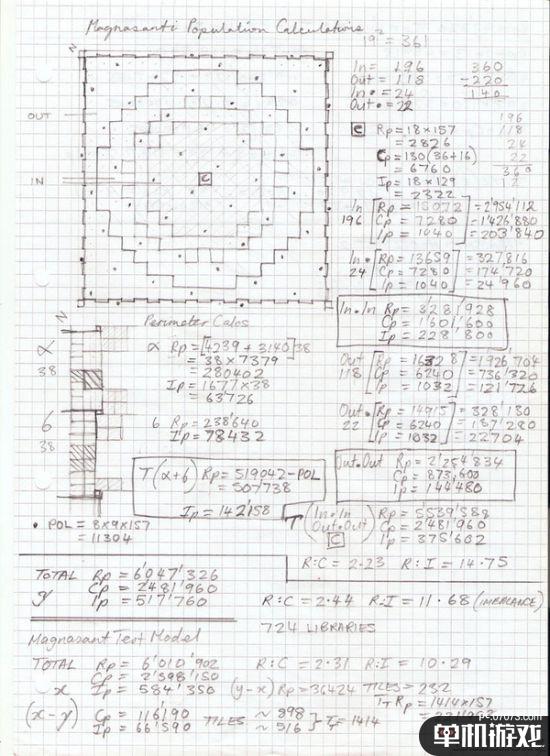 Magnasanti Population Calculations
19² = 361
In = 196
Out = 118
In• = 24
Out• = 22
360
-220
140
196
118
24
22
360
12
OUT
IN
C
N
C Rp = 18 x 157
= 2826
Cp = 130 (36+16)
= 6760
Ip = 18 x 129
= 2322
In 196 [Rp = 15072] = 2'954'112
[Cp = 7280] = 1'426'880
[Ip = 1040] = 203'840
In• 24 [Rp = 13659] = 327'816
[Cp = 7280] = 174'720
[Ip = 1040] = 24'960
In•In Rp = 3'281'928
Cp = 1'601'600
Ip = 228'800
Out 118 [Rp = 16328] = 1'926'704
[Cp = 6240] = 736'320
[Ip = 1032] = 121'776
Out• 22 [Rp = 14915] = 328'130
[Cp = 6240] = 137'280
[Ip = 1032] = 22704
Out•Out Rp = 2'254'834
Cp = 873,600
Ip = 144'480
T(In•In Out•Out) C Rp = 5539'588
Cp = 2'481'960
Ip = 375'602
R:C = 2.23 R:I = 14.75
N
α
38
6
38
Perimeter Calcs
α Rp = [4239 + 3140] 38
= 38 x 7379
= 280402
Ip = 1677 x 38
= 63726
6 Rp = 238'640
Ip = 78432
T(α+6) Rp = 519042 - POL
= 507'738
Ip = 142'158
• POL = 8x9x157
= 11304
TOTAL Rp = 6'047'326
y Cp = 2'481'960
Ip = 517'760
R:C = 2.44 R:I = 11.68 (IMBALANCE)
724 LIBRARIES
Magnasanti Text Model
TOTAL Rp = 6'010'902 R:C = 2.31 R:I = 10.29
x Cp = 2'598'150
Ip = 584'350 (y-x) Rp = 36424 TILES = 232
(x-y) Cp = 116'190 TILES ~ 898
Ip = 66'590 ~ 516 } T = 1414
1T Rp = 1414 x 157
pc.07073.com
单机游戏